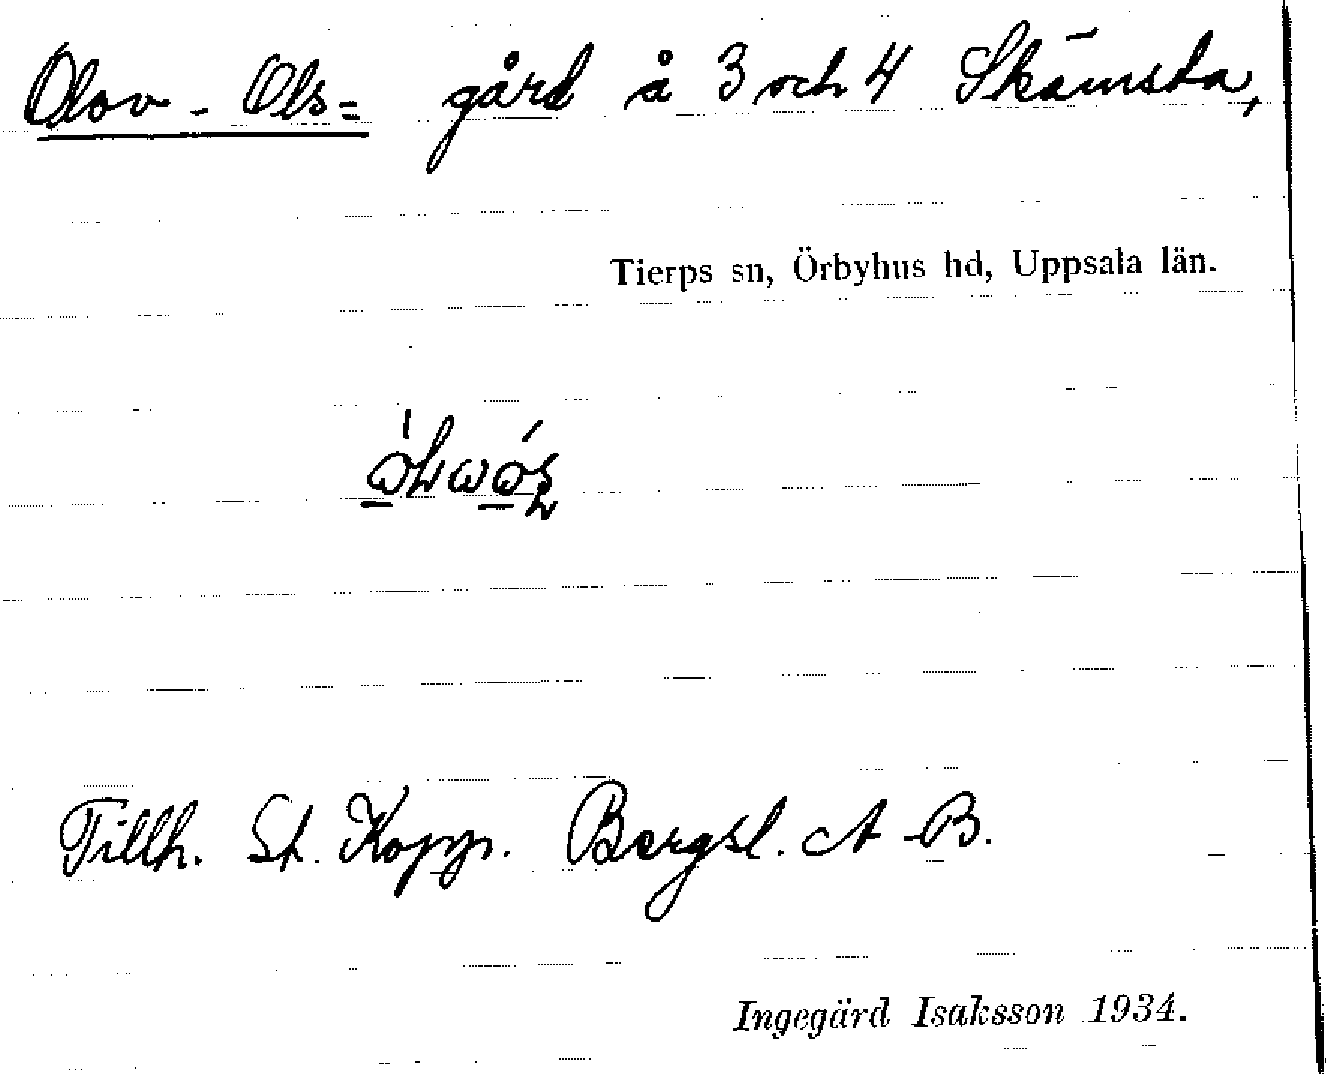 Olov-Ols= gård å 3 och 4 Skämsta,
Tierps sn, Örbyhus hd, Uppsala län.
Tillh. St. Kopp. Bergsl. A-B.
Ingegärd Isaksson 1934.